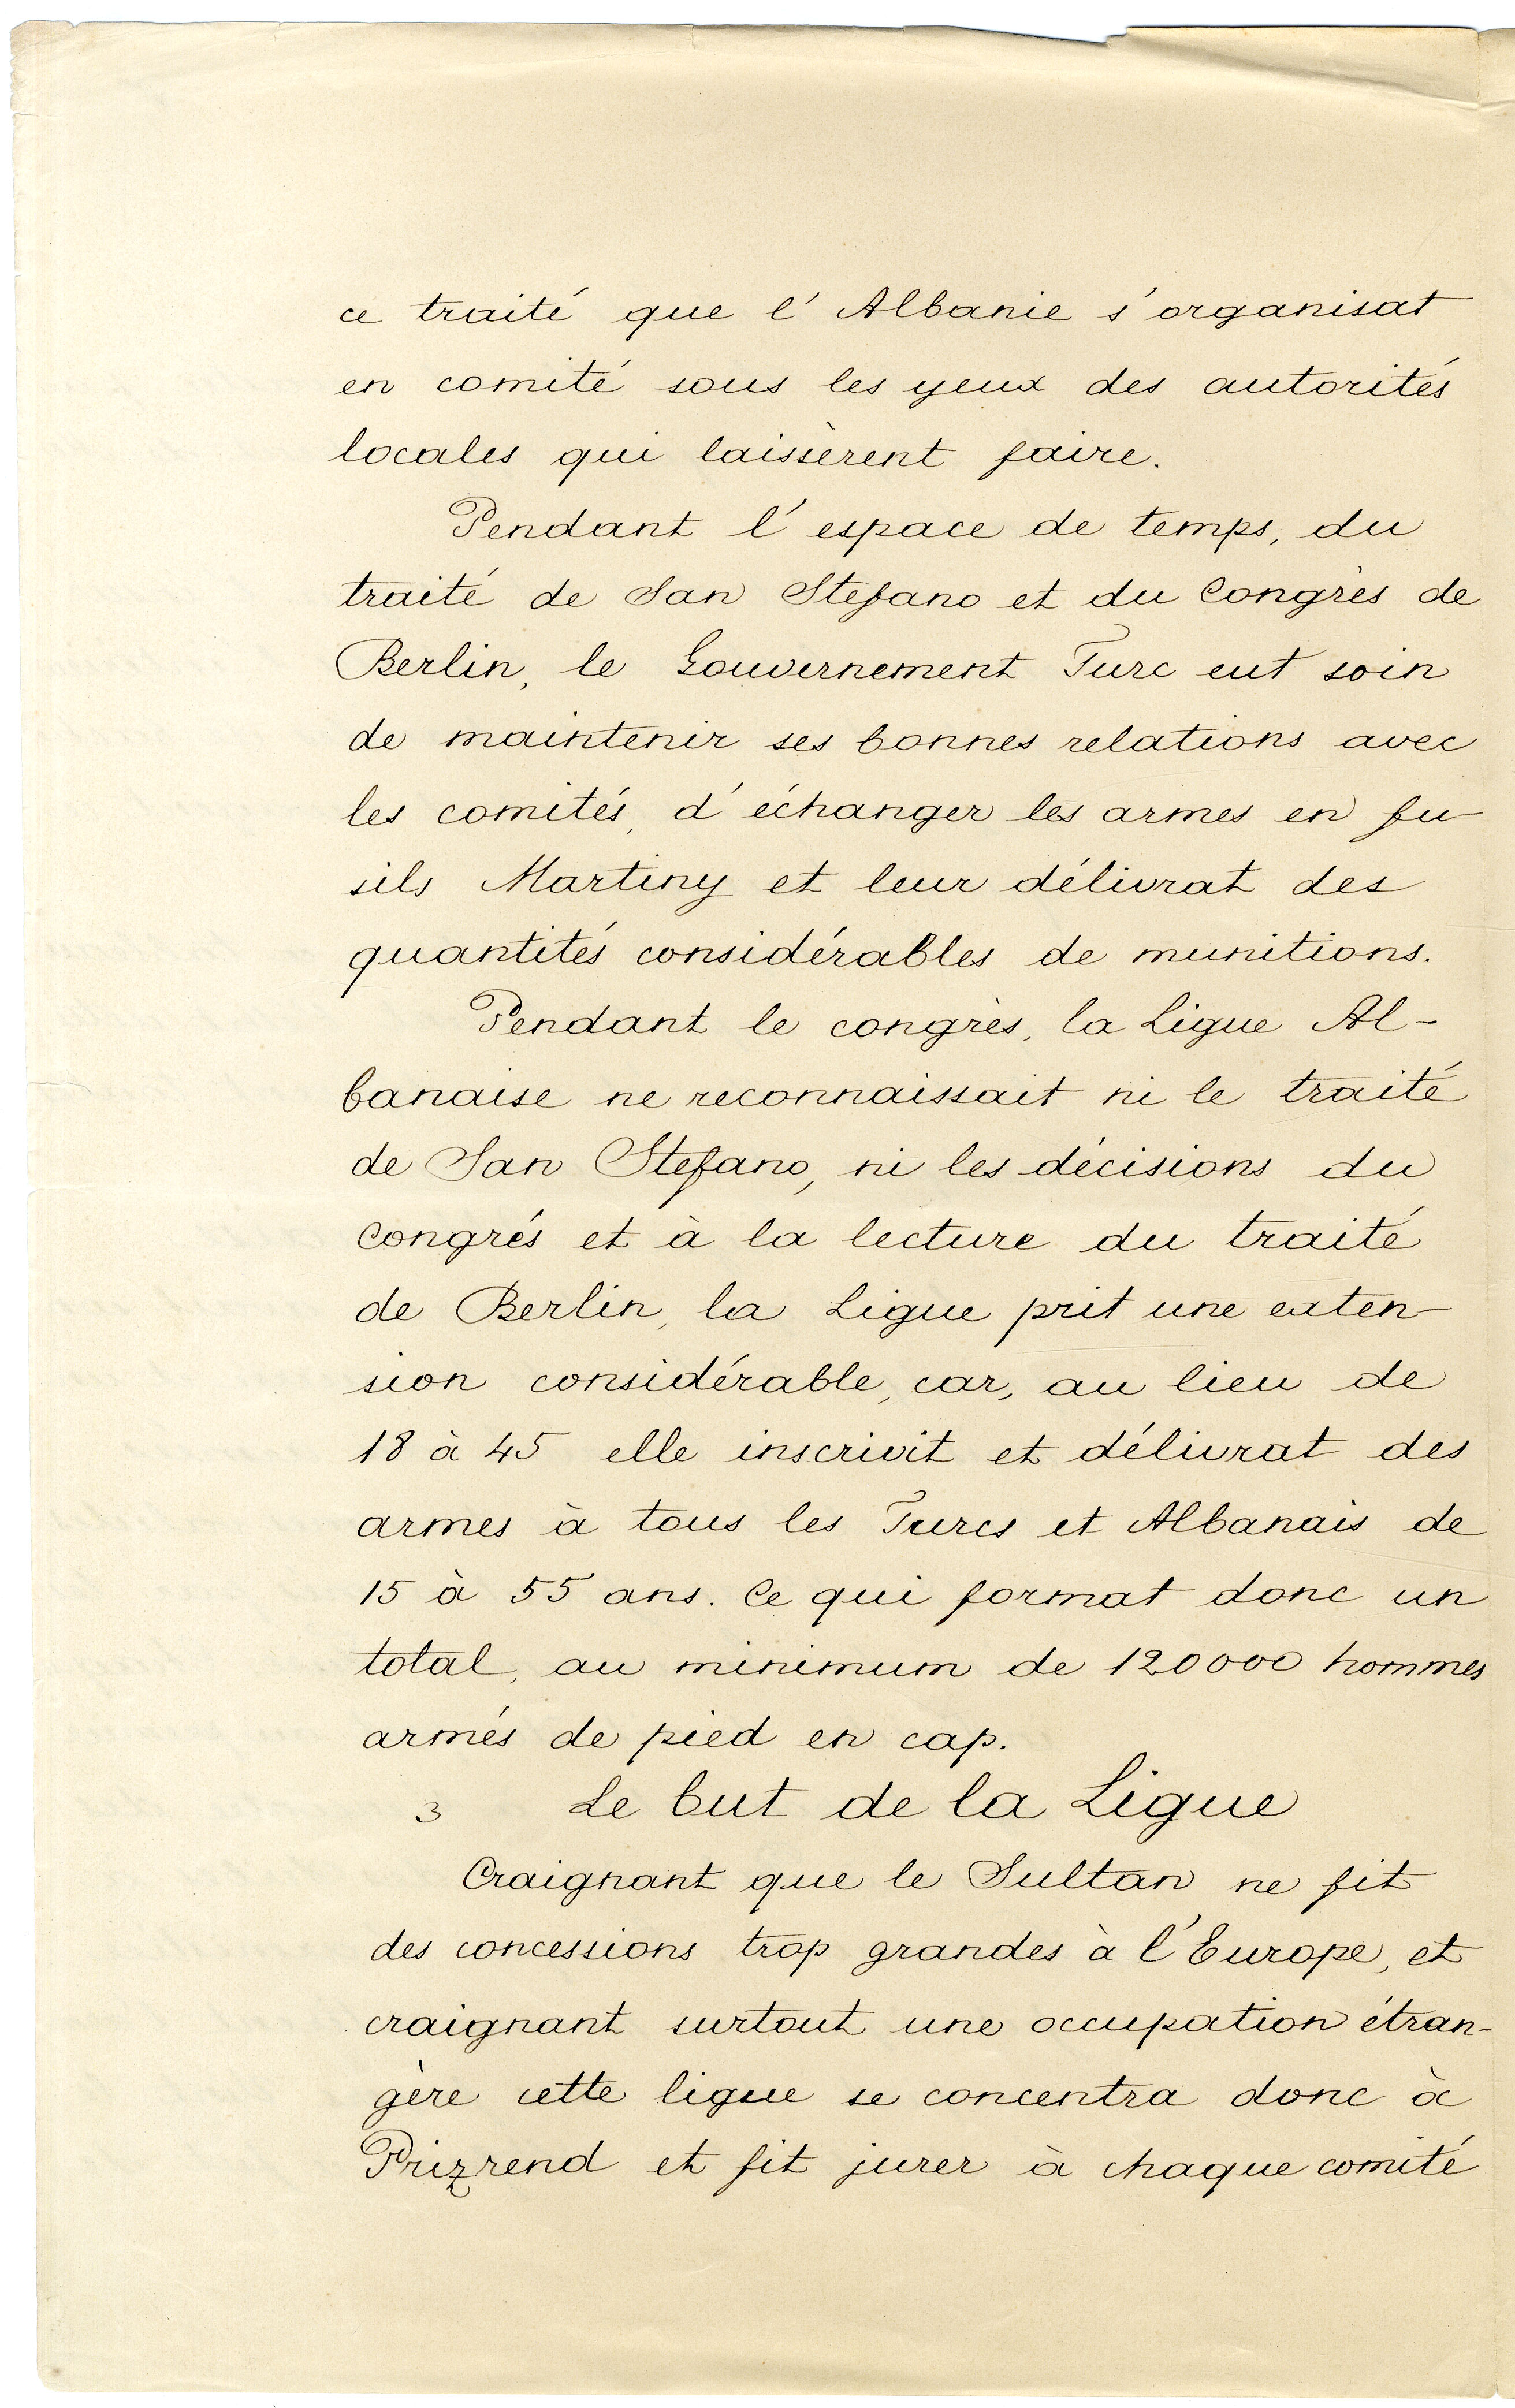 ce traité que l'Albanie s'organisat
en comité sous les yeux des autorités
locales qui laissèrent faire.
Pendant l'espace de temps, du
traité de San Stefano et du Congrès de
Berlin, le Gouvernement Turc eut soin
de maintenir ses bonnes relations avec
les comités, d'échanger les armes en fu-
sils Martiny et leur délivrat des
quantités considérables de munitions.
Pendant le congrès, la Ligue Al-
banaise ne reconnaissait ni le traité
de San Stefano, ni les décisions du
Congrés et à la lecture du traité
de Berlin, la Ligue prit une exten-
sion considérable, car, au lieu de
18 à 45 elle inscrivit et délivrat des
armes à tous les Turcs et Albanais de
15 à 55 ans. Ce qui format donc un
total, au minimum de 120000 hommes
armés de pied en cap.
3 Le but de la Ligue
Craignant que le Sultan ne fit
des concessions trop grandes à l'Europe, et
craignant surtout une occupation étran-
gère cette ligue se concentra donc à
Prizrend et fit jurer à chaque comité